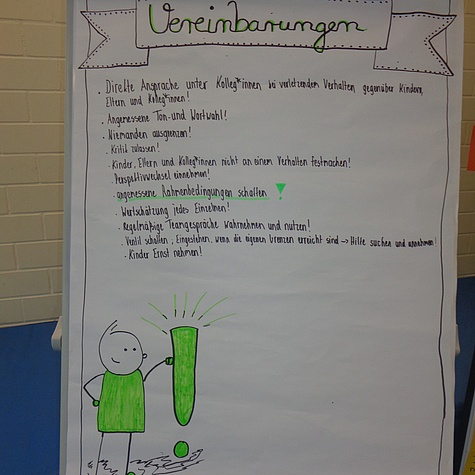 Vereinbarungen
· Direkte Ansprache unter Kolleg*innen bei verletzendem Verhalten gegenüber Kindern,
Eltern und Kolleg*innen!
· Angemessene Ton- und Wortwahl!
· Niemanden ausgrenzen!
· Kritik zulassen!
· Kinder, Eltern und Kolleg*innen nicht an einem Verhalten festmachen!
· Perspektivwechsel einnehmen!
· angemessene Rahmenbedingungen schaffen !
· Wertschätzung jedes Einzelnen!
· Regelmäßige Teamgespräche wahrnehmen und nutzen!
· Ventil schaffen, Eingestehen, wenn die eigenen Grenzen erreicht sind → Hilfe suchen und annehmen!
· Kinder Ernst nehmen!